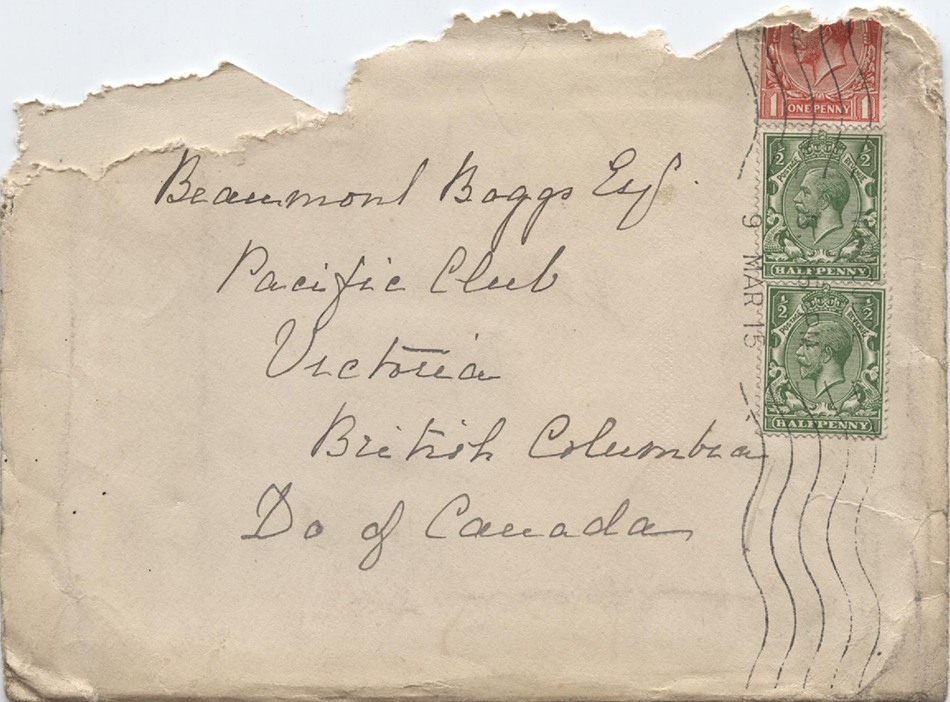 Beaumont Boggs Esq.
Pacific Club
Victoria
British Columbia
Do of Canada
1 ONE PENNY 1
½ POSTAGE REVENUE ½
HALFPENNY
½ POSTAGE REVENUE ½
HALFPENNY
9 MAR 15